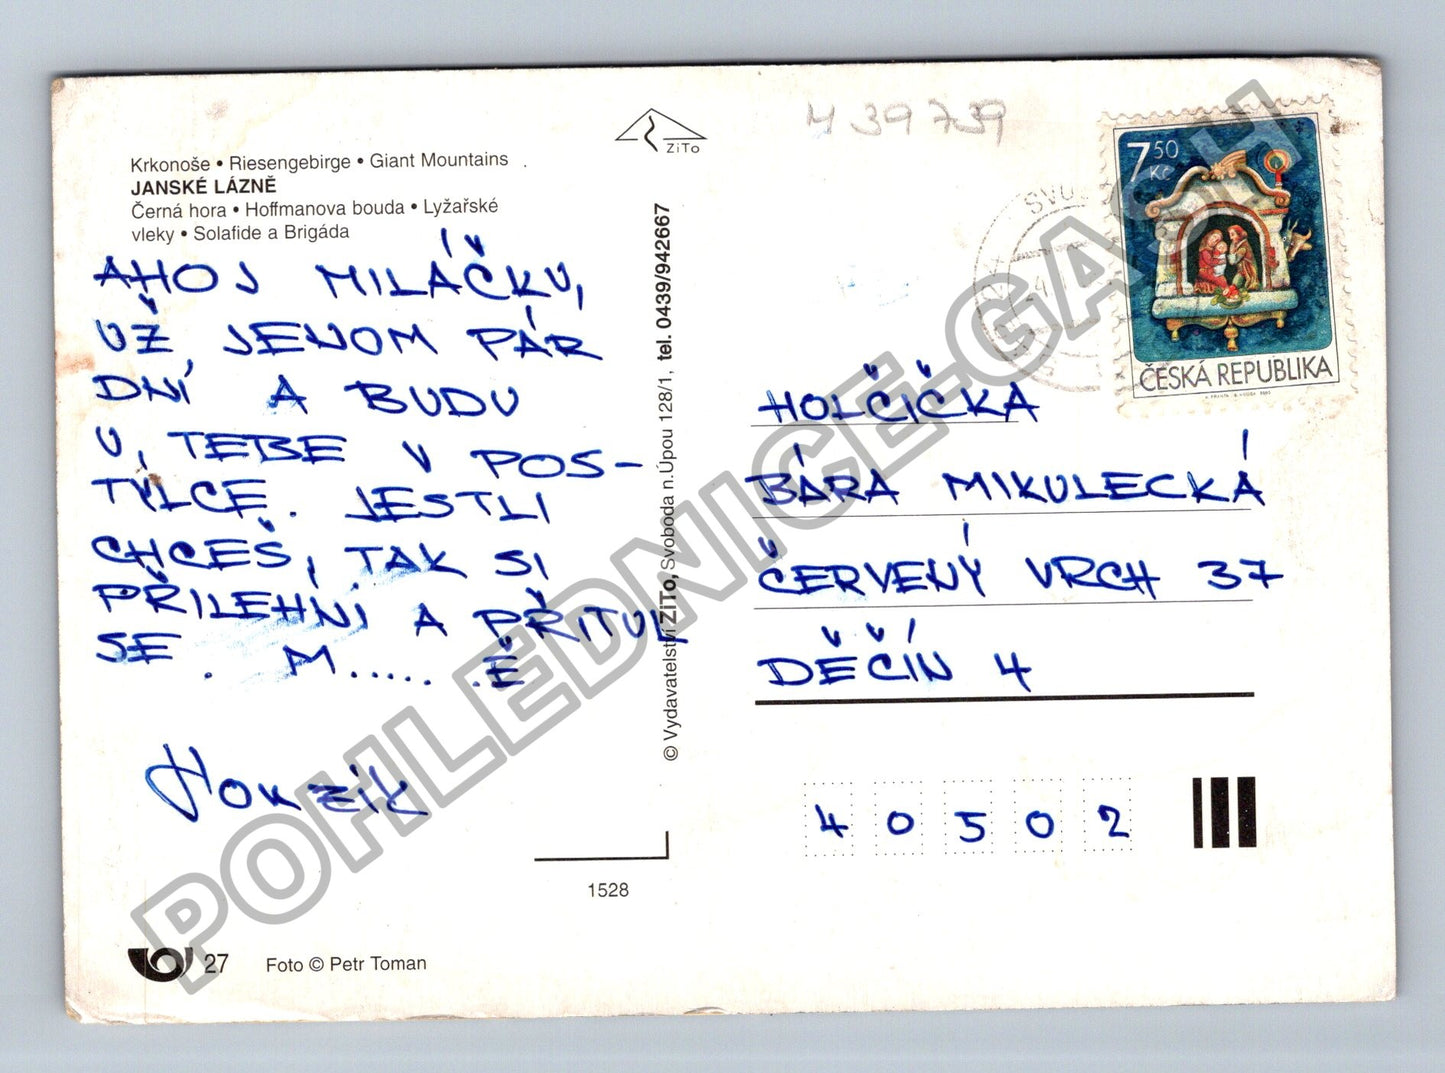 Krkonoše • Riesengebirge • Giant Mountains
JANSKÉ LÁZNĚ
Černá hora • Hoffmanova bouda • Lyžařské
vleky • Solafide a Brigáda
AHOJ MILÁČKU,
UŽ, JENOM PÁR
DNÍ A BUDU
U, TEBE V POS-
TYLCE. JESTLI
CHCEŠ, TAK SI
PŘILEHNI A PŘITUL
SE. M..... .Ě
Honzík
1528
27 Foto © Petr Toman
ZiTo
© Vydavatelství ZiTo, Svoboda n.Úpou 128/1, tel. 0439/942667
M 39739
750
Kč
ČESKÁ REPUBLIKA
HOLČIČKA
BÁRA MIKULECKÁ
ČERVENÝ VRCH 37
DĚČÍN 4
40502
POHLEDNICE-GASH